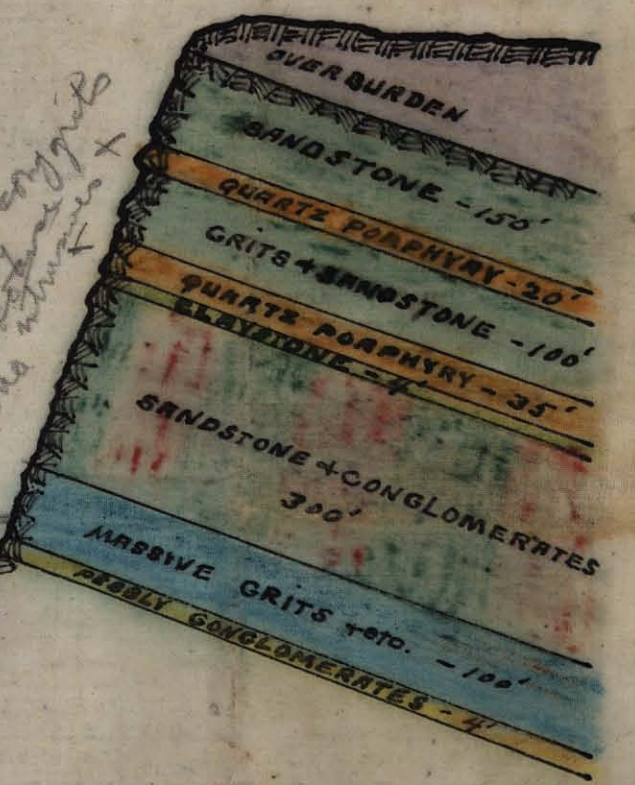 OVERBURDEN
SANDSTONE - 150'
QUARTZ PORPHYRY - 20'
GRITS + SANDSTONE - 100'
QUARTZ PORPHYRY - 35'
CLAYSTONE - 4'
SANDSTONE + CONGLOMERATES
300'
MASSIVE GRITS + etc. - 100'
PEBBLY CONGLOMERATES - 4'
grits
intrusives +